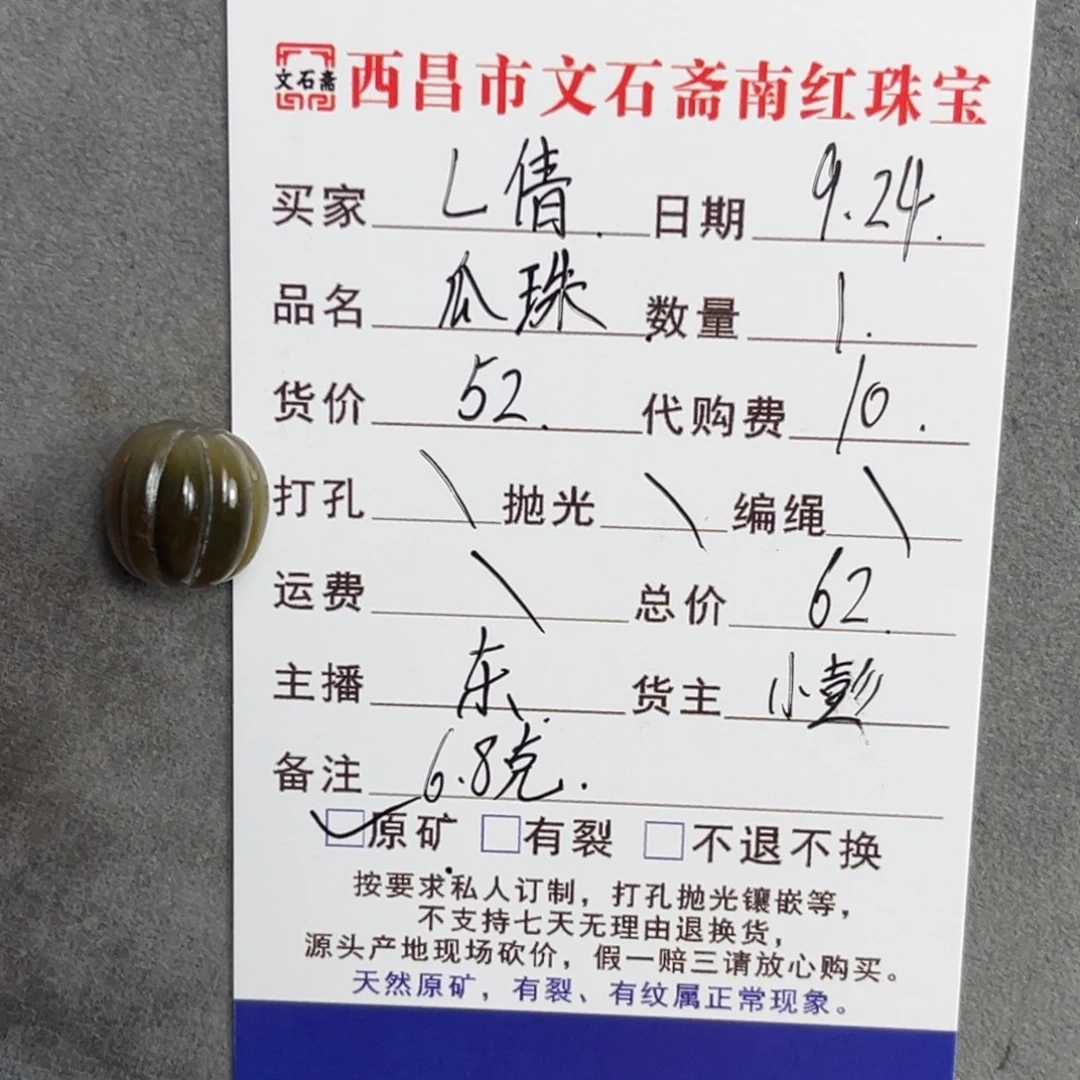 文石斋 西昌市文石斋南红珠宝
买家 L倩. 日期 9.24.
品名 瓜珠 数量 1.
货价 52. 代购费 10.
打孔 \ 抛光 \ 编绳 \
运费 \ 总价 62.
主播 东. 货主 小彭
备注 6.8克.
☑原矿 □有裂 □不退不换
按要求私人订制，打孔抛光镶嵌等，
不支持七天无理由退换货，
源头产地现场砍价，假一赔三请放心购买。
天然原矿，有裂、有纹属正常现象。